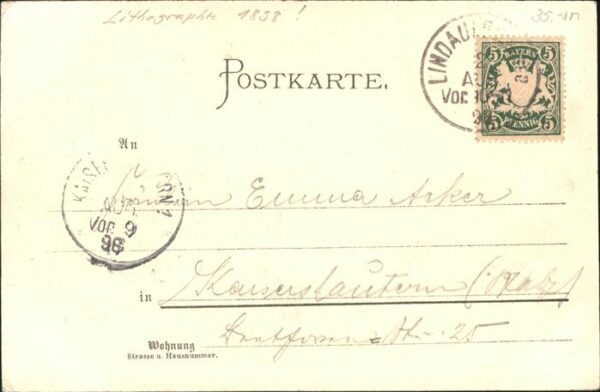 Lithographie 1898!
35,-
POSTKARTE.
LINDAU
AU
Vor. 10
BAYERN
5 5
5 5
PFENNIG
An
KAISE
AUG
Vor. 9
98
Emma Acker
in Kaiserslautern (Pfalz)
Str. 25
Wohnung
Strasse u. Hausnummer.